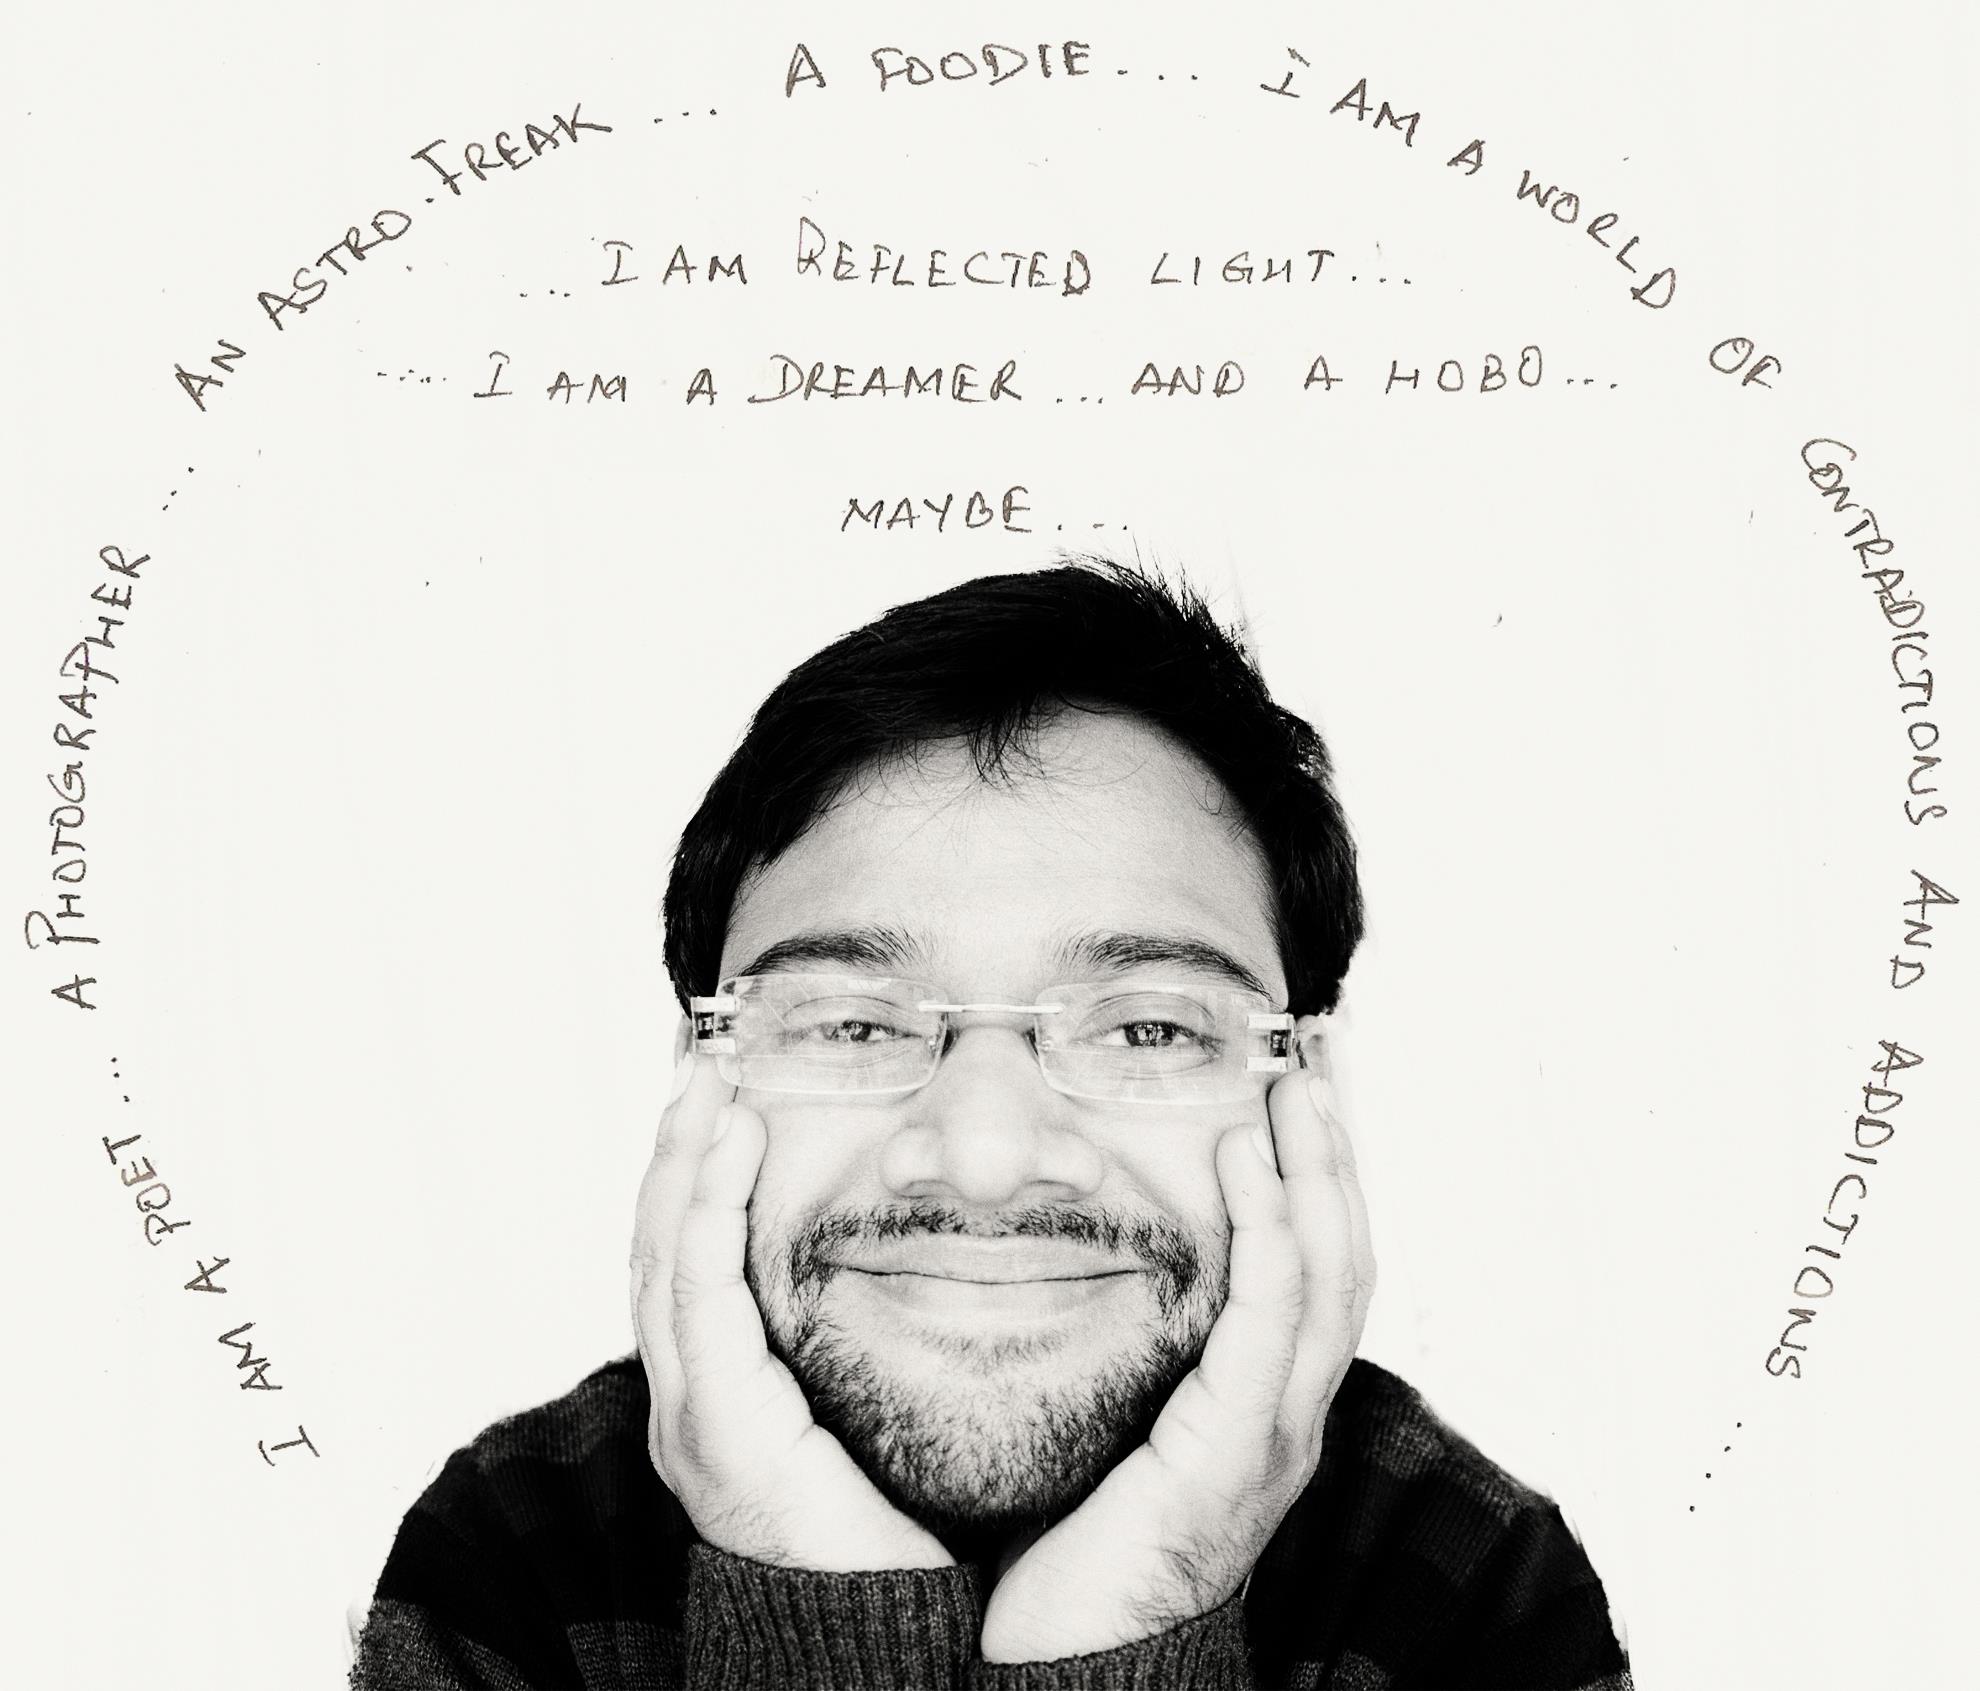 I AM A POET... A PHOTOGRAPHER ... AN ASTRO-FREAK ... A FOODIE... I AM A WORLD OF CONTRADICTIONS AND ADDICTIONS ...
...I AM REFLECTED LIGHT...
....I AM A DREAMER ...AND A HOBO...
MAYBE...